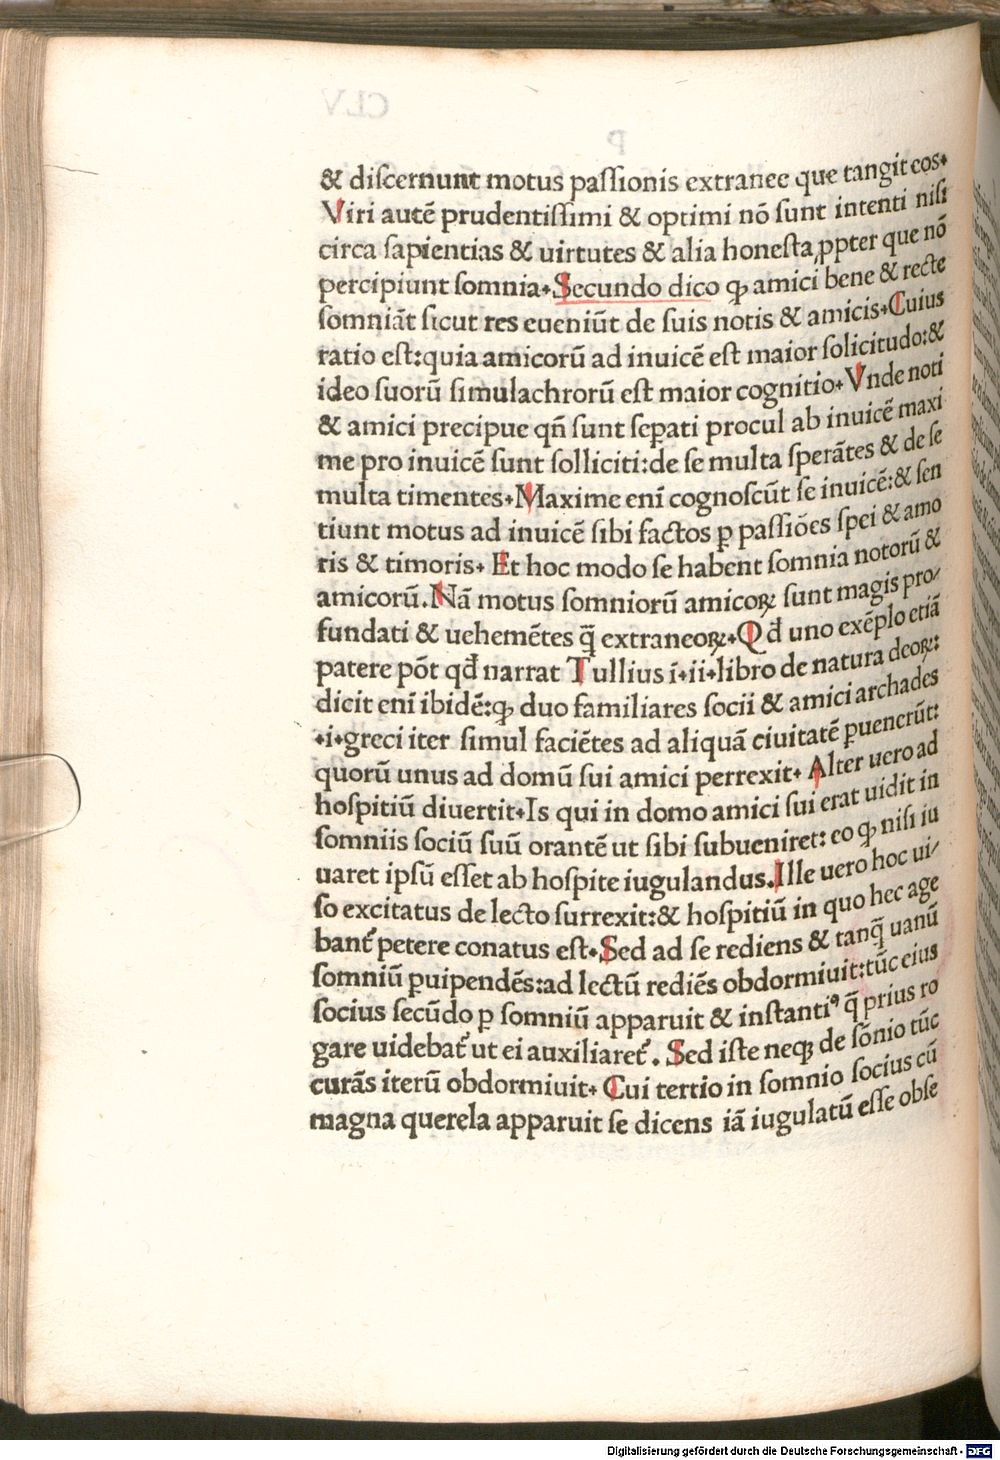 & diſcernunt motus paſſionis extranee que tangit eos.
Viri autē prudentiſſimi & optimi nō ſunt intenti niſi
circa ſapientias & uirtutes & alia honeſta ꝓpter que nō
percipiunt ſomnia. Secundo dico ꝙ amici bene & recte
ſomniāt ſicut res eueniūt de ſuis notis & amicis. Cuius
ratio eſt: quia amicorū ad inuicē eſt maior ſolicitudo: &
ideo ſuorū ſimulachrorū eſt maior cognitio. Vnde noti
& amici precipue qn̄ ſunt ſeꝑati procul ab inuicē maxi
me pro inuicē ſunt ſolliciti: de ſe multa ſperātes & de ſe
multa timentes. Maxime enī cognoſcūt ſe inuicē: & ſen
tiunt motus ad inuicē ſibi factos ꝑ paſſiōes ſpei & amo
ris & timoris. Et hoc modo ſe habent ſomnia notorū &
amicorū. Nā motus ſomniorū amicoꝝ ſunt magis pro/
fundati & uehemētes q̄ extraneoꝝ. Qd̄ uno exēplo etiā
patere pōt qd̄ narrat Tullius ī.ii.libro de natura deoꝝ:
dicit enī ibidē: ꝙ duo familiares ſocii & amici archades
.i.greci iter ſimul faciētes ad aliquā ciuitatē ꝑuenerūt:
quorū unus ad domū ſui amici perrexit. Alter uero ad
hoſpitiū diuertit. Is qui in domo amici ſui erat uidit in
ſomniis ſociū ſuū orantē ut ſibi ſubueniret: eo ꝙ niſi iu
uaret ipſū eſſet ab hoſpite iugulandus. Ille uero hoc ui/
ſo excitatus de lecto ſurrexit: & hoſpitiū in quo hec age
bant᷑ petere conatus eſt. Sed ad ſe rediens & tanq̄ uanū
ſomniū ꝑuipendēs: ad lectū rediēs obdormiuit: tūc eius
ſocius ſecūdo ꝑ ſomniū apparuit & inſtantiꝰ q̄ prius ro
gare uidebat᷑ ut ei auxiliaret᷑. Sed iſte neqꝫ de ſōnio tūc
curās iterū obdormiuit. Cui tertio in ſomnio ſocius cū
magna querela apparuit ſe dicens iā iugulatū eſſe obſe
Digitalisierung gefördert durch die Deutsche Forschungsgemeinschaft - DFG